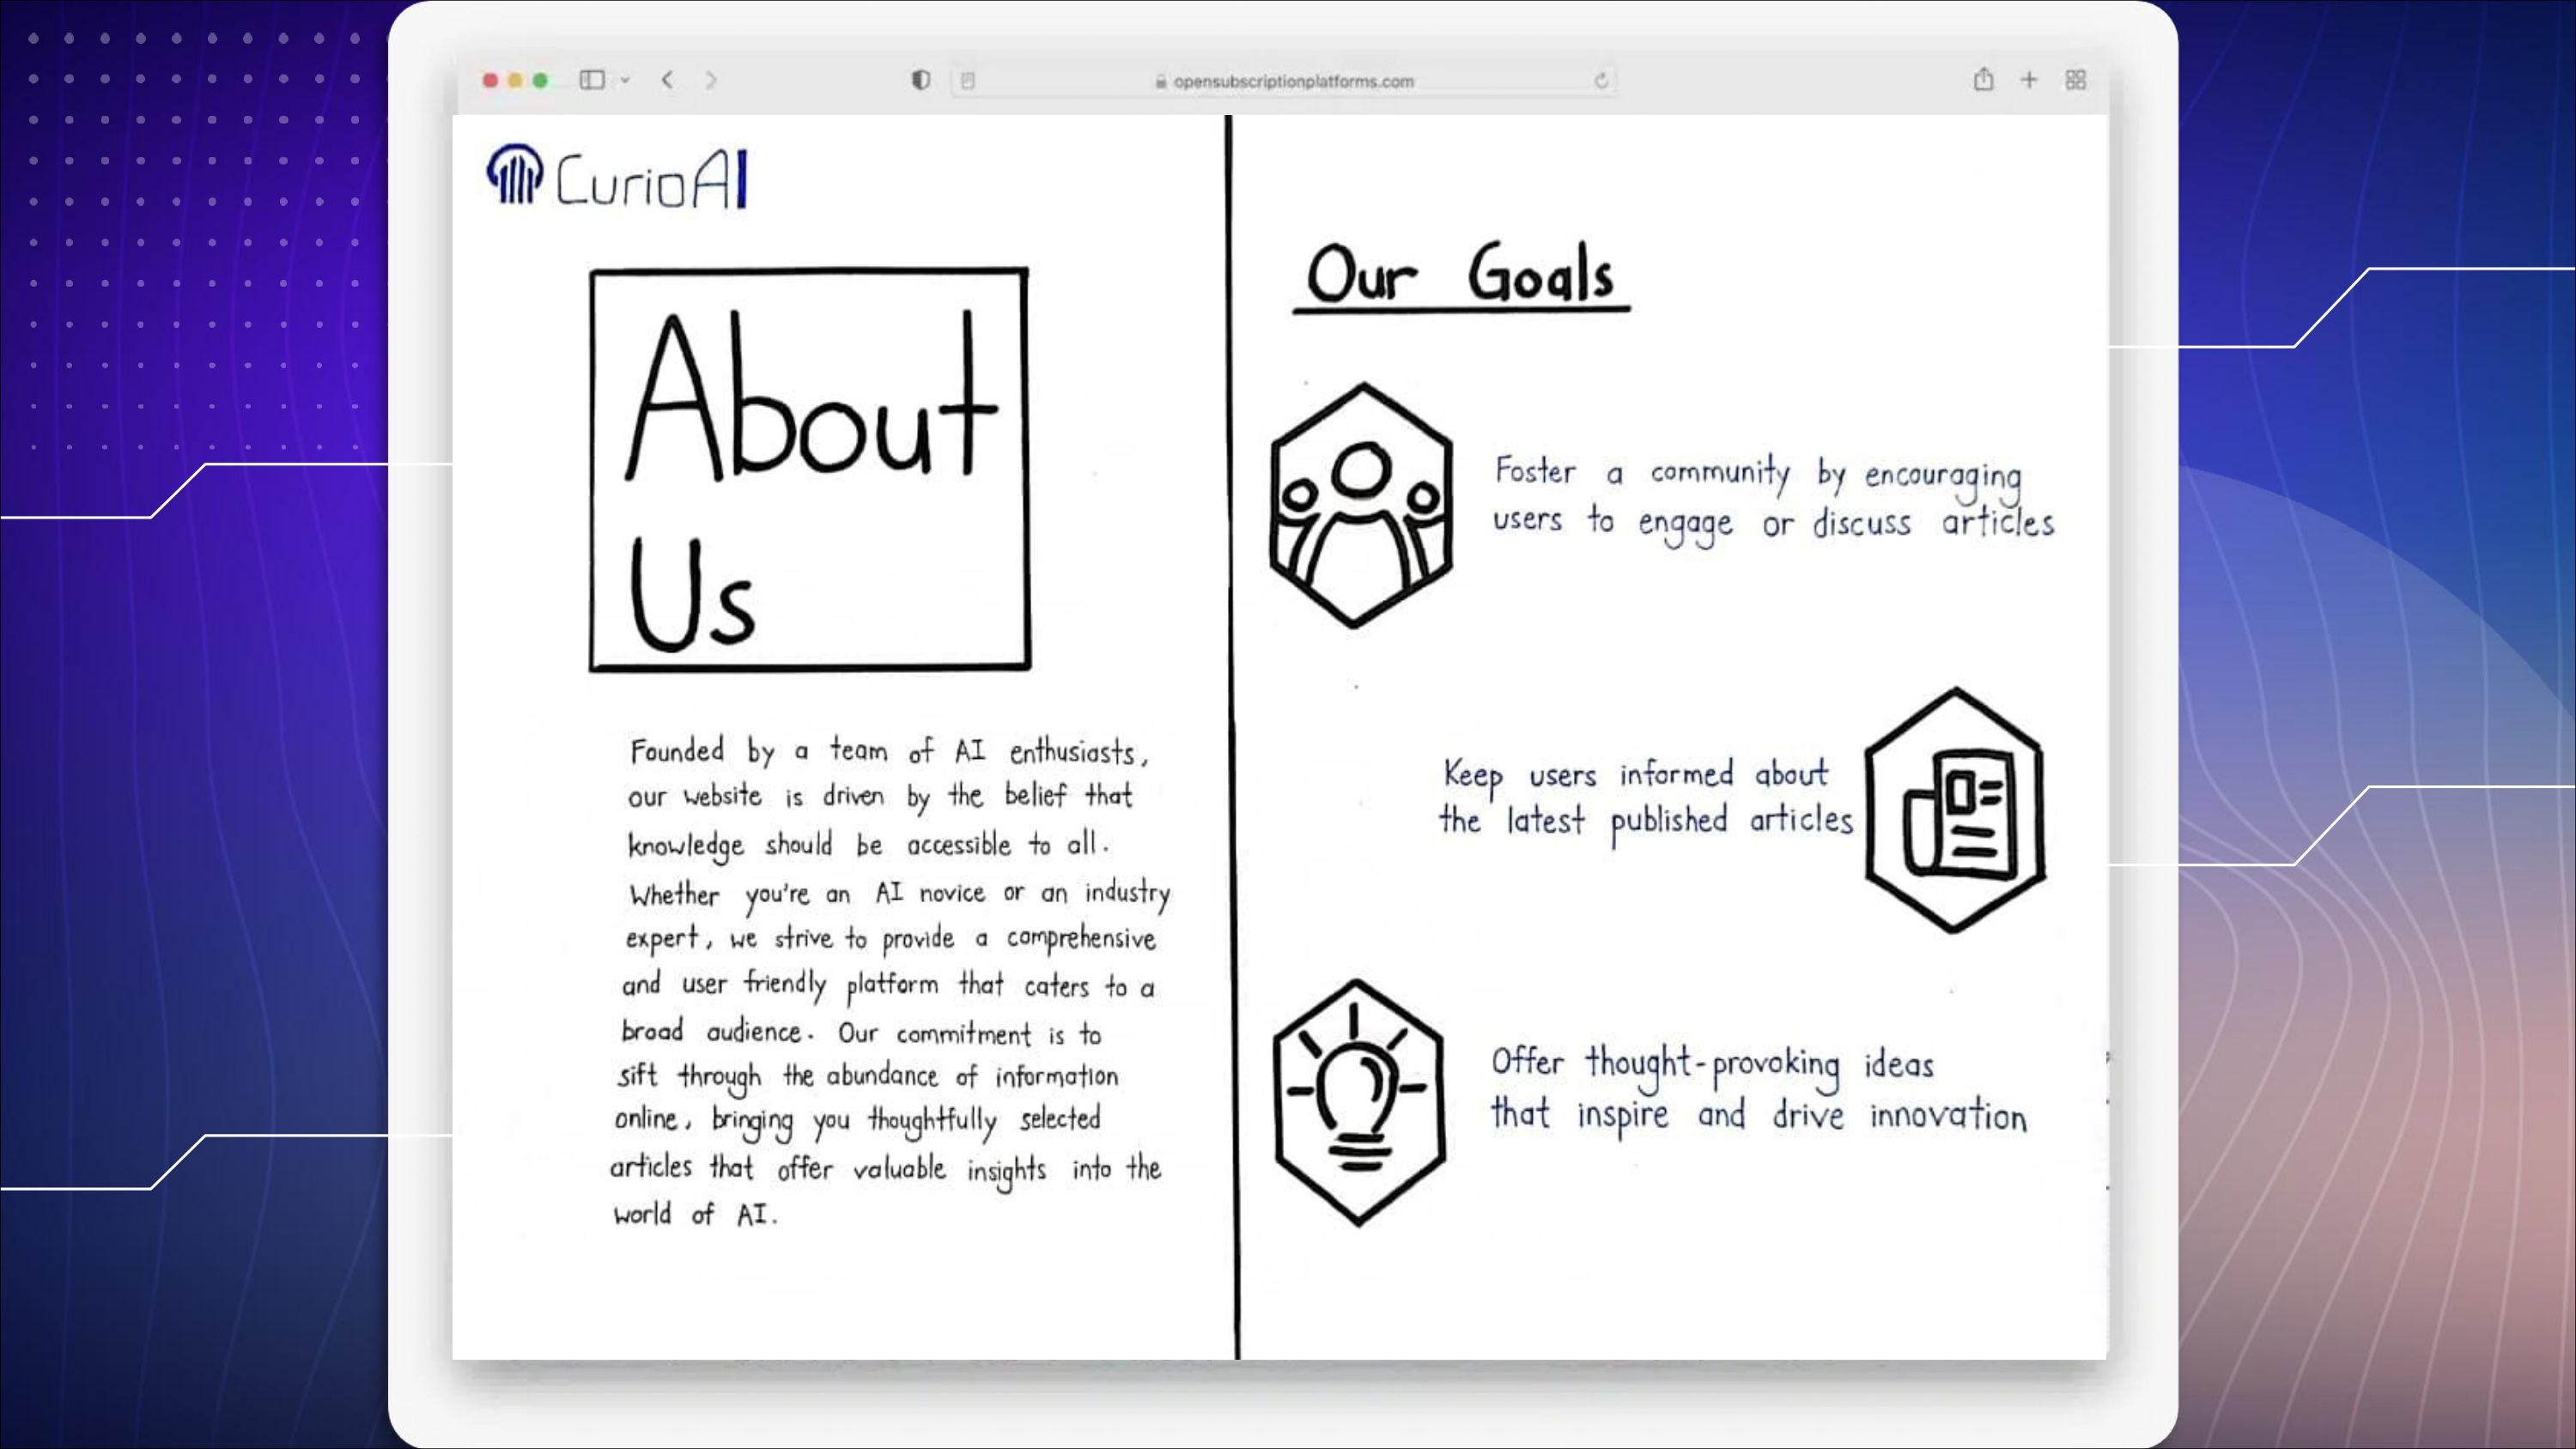 opensubscriptionplatforms.com
CurioAI
About
Us
Founded by a team of AI enthusiasts,
our website is driven by the belief that
knowledge should be accessible to all.
Whether you're an AI novice or an industry
expert, we strive to provide a comprehensive
and user friendly platform that caters to a
broad audience. Our commitment is to
sift through the abundance of information
online, bringing you thoughtfully selected
articles that offer valuable insights into the
world of AI.
Our Goals
Foster a community by encouraging
users to engage or discuss articles
Keep users informed about
the latest published articles
Offer thought-provoking ideas
that inspire and drive innovation